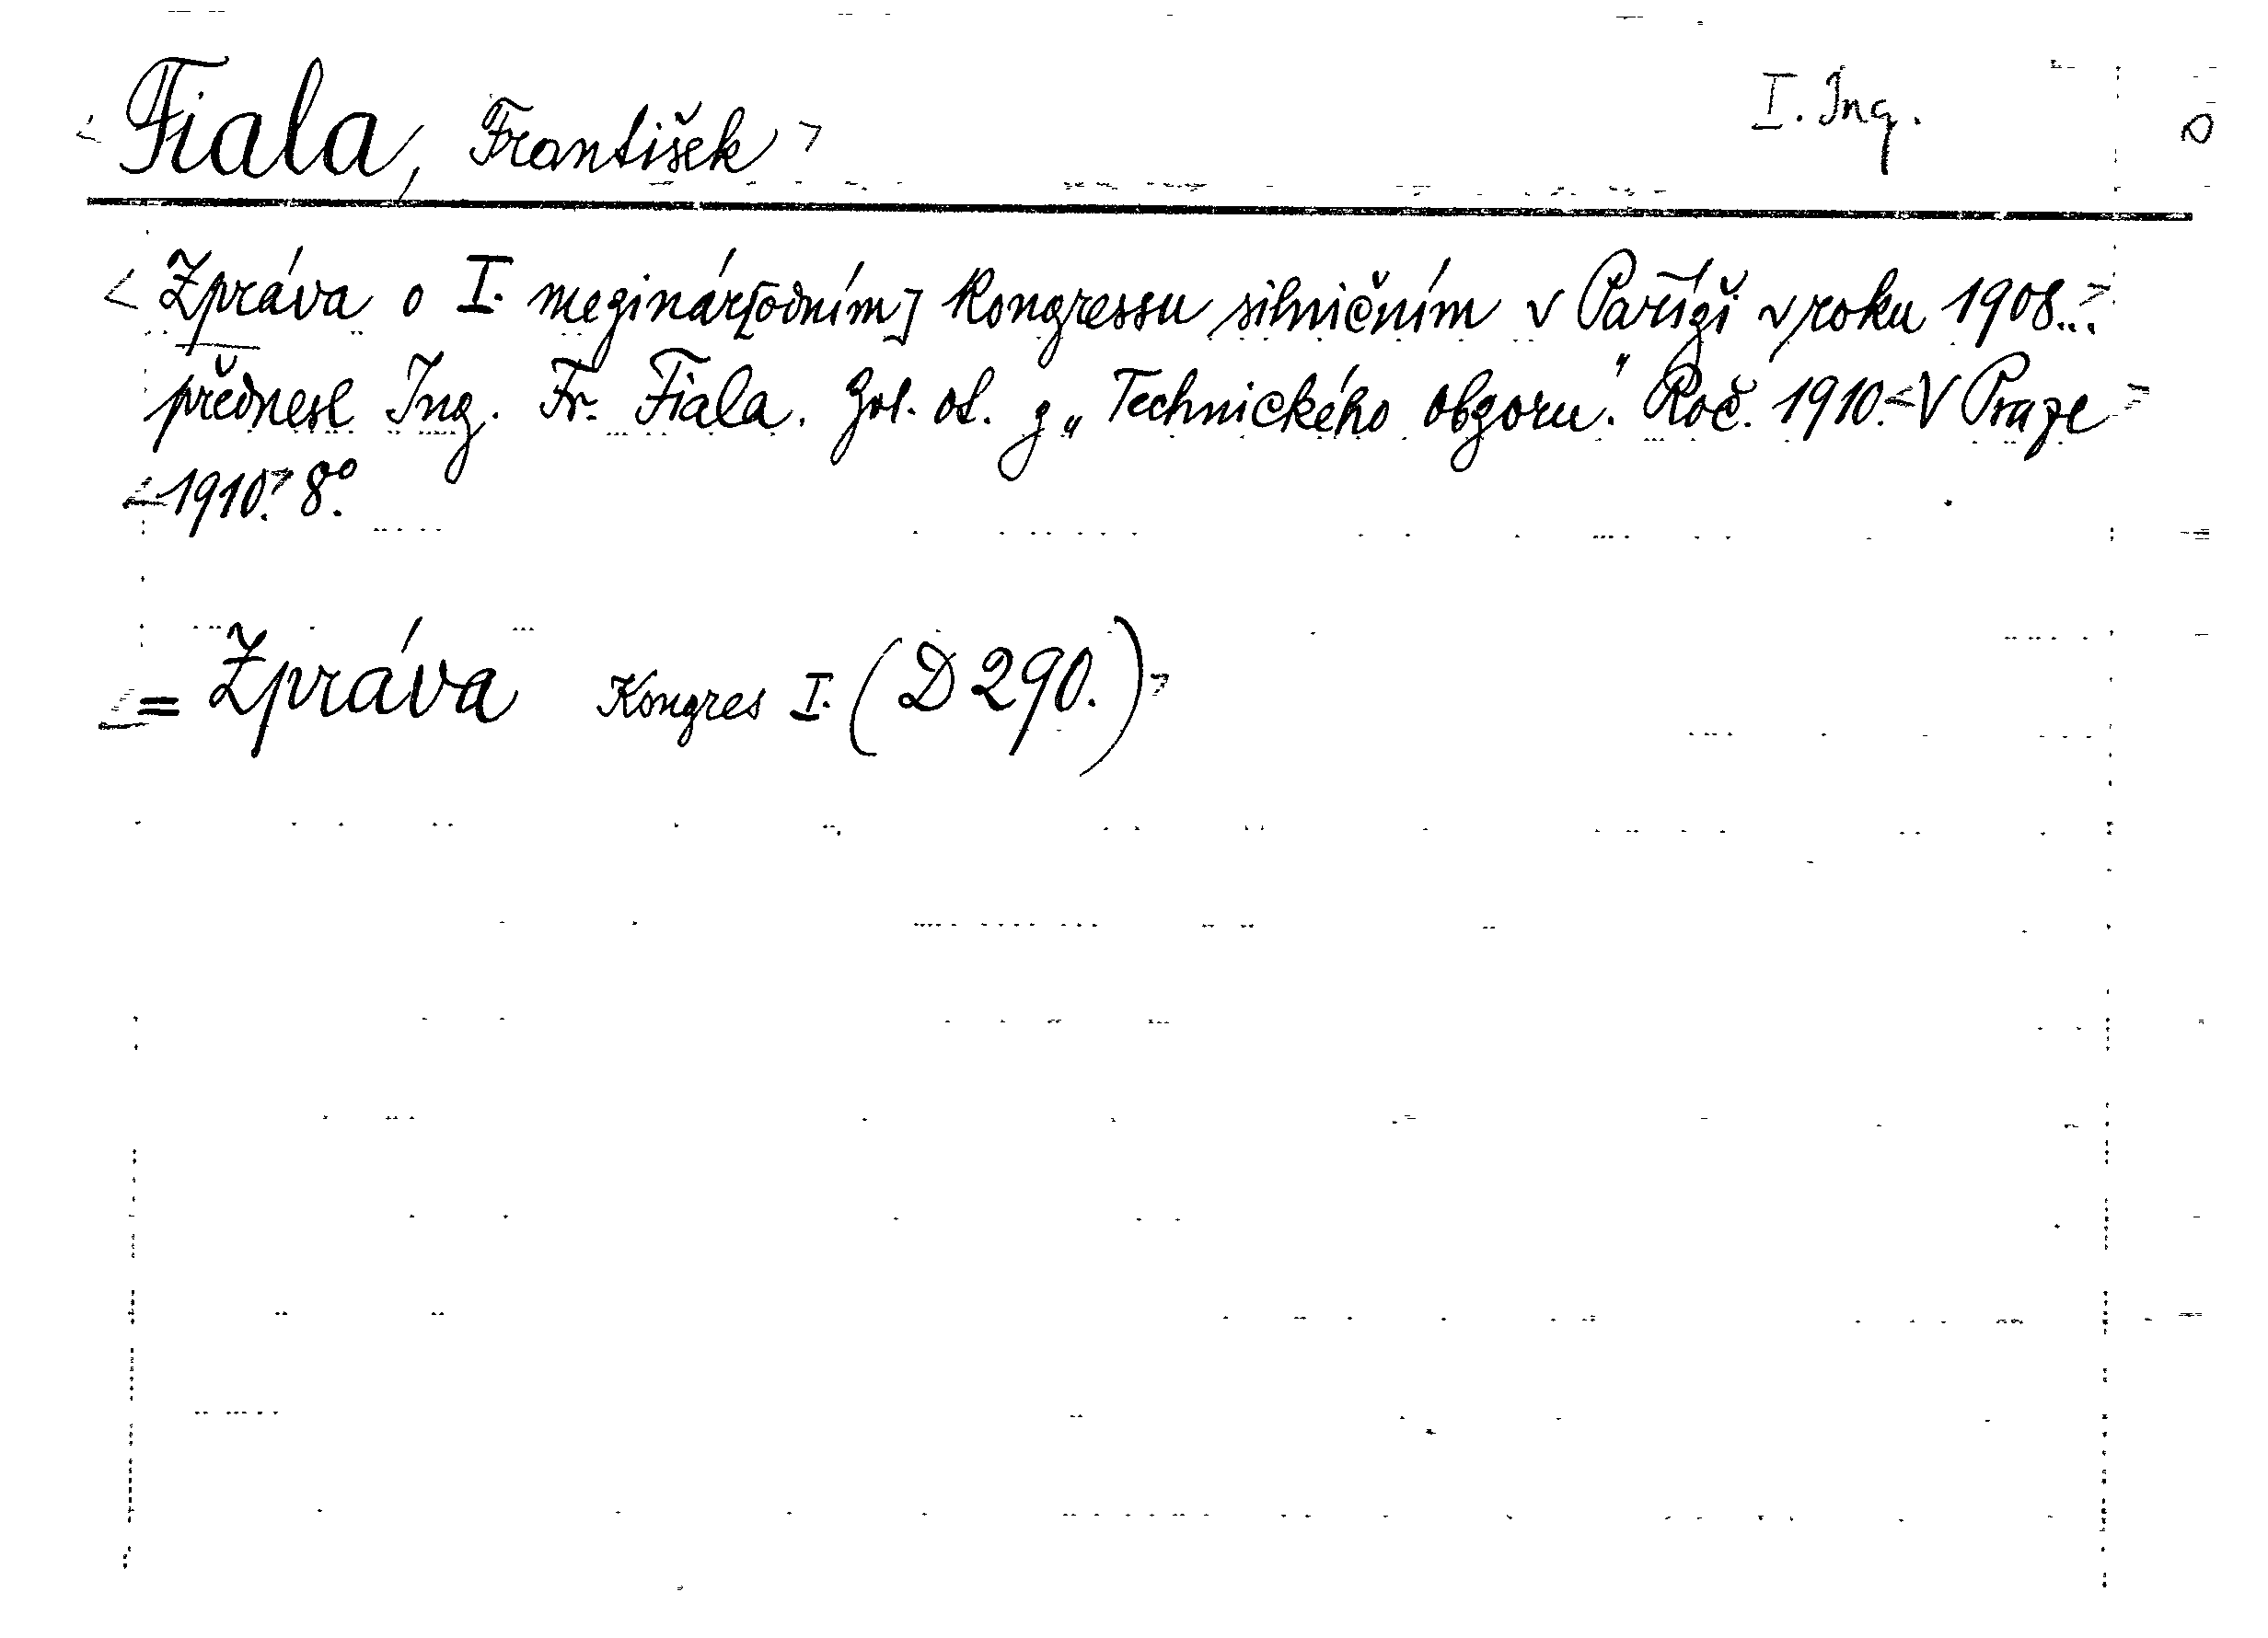 <Fiala, František> I. Ing.
<Zpráva o I. mezinár[odním] kongressu silničním v Paříži v roku 1908...>
přednesl Ing. Fr. Fiala. Zvl. ot. z „Technického obzoru". Roč. 1910. <V Praze>
<1910.> 8°.
<= Zpráva Kongres I. (D 290.)>